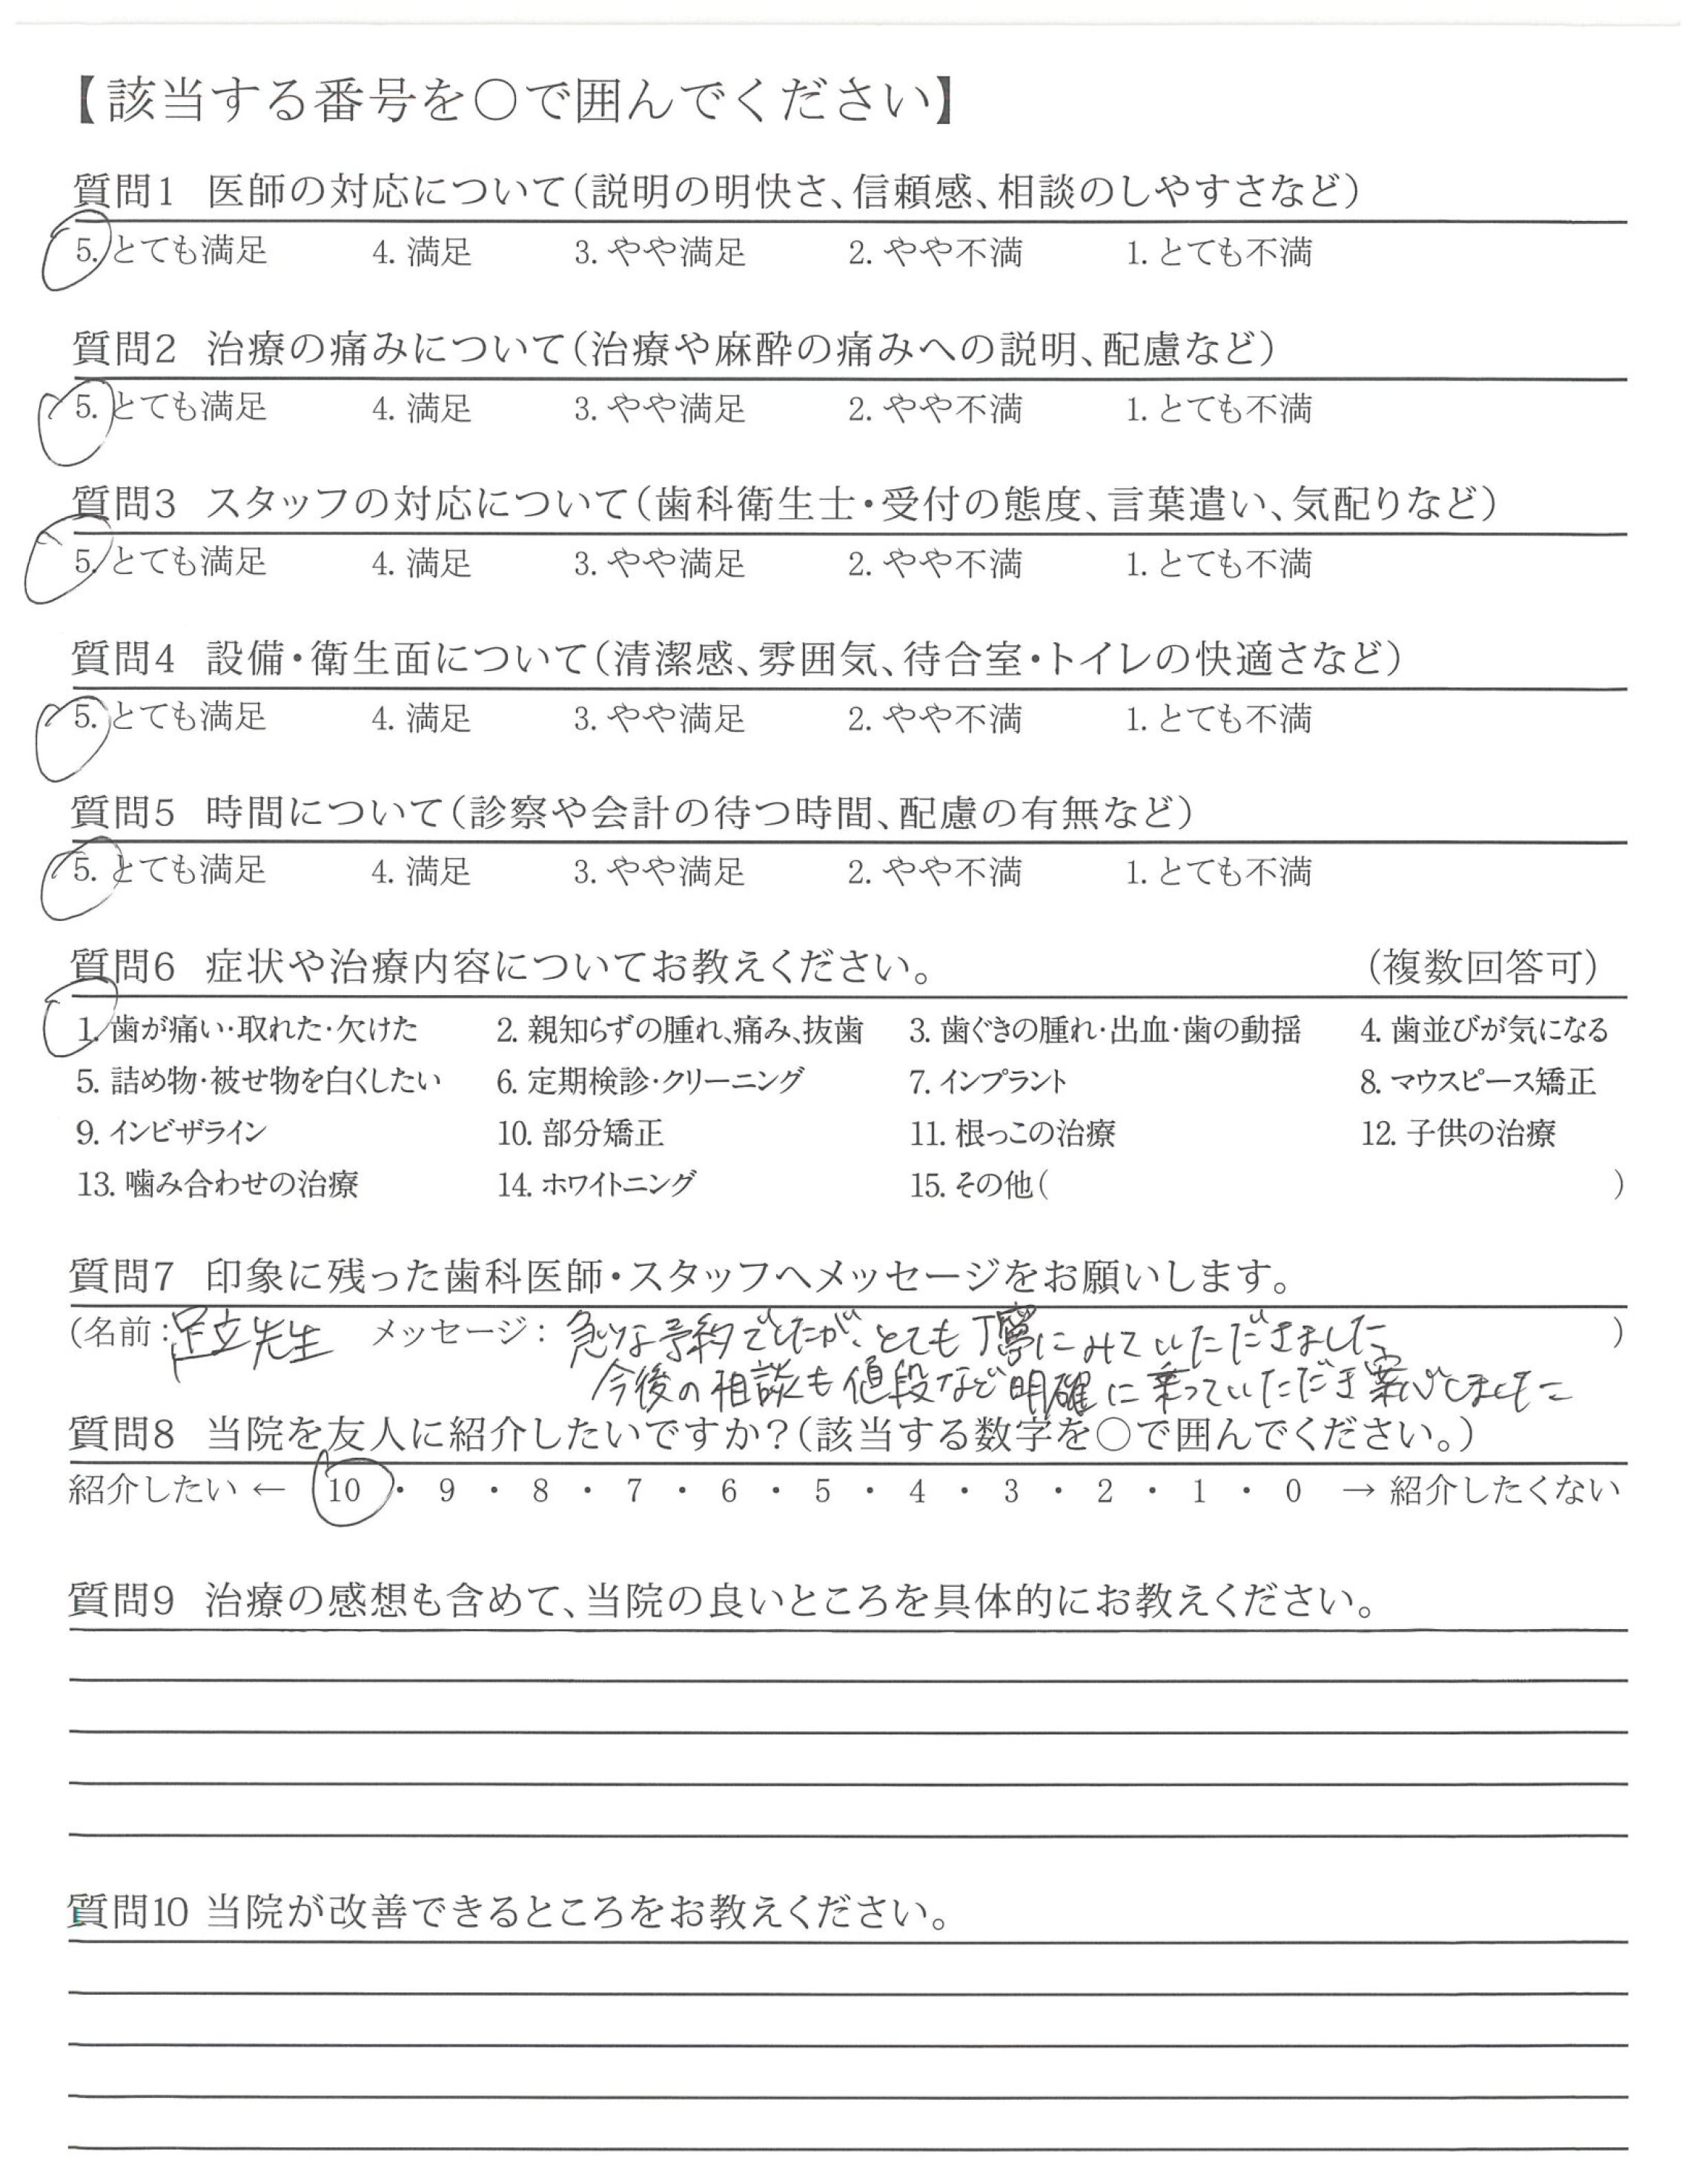 【該当する番号を○で囲んでください】
質問1 医師の対応について(説明の明快さ、信頼感、相談のしやすさなど)
5. とても満足 4. 満足 3. やや満足 2. やや不満 1. とても不満
質問2 治療の痛みについて(治療や麻酔の痛みへの説明、配慮など)
5. とても満足 4. 満足 3. やや満足 2. やや不満 1. とても不満
質問3 スタッフの対応について(歯科衛生士・受付の態度、言葉遣い、気配りなど)
5. とても満足 4. 満足 3. やや満足 2. やや不満 1. とても不満
質問4 設備・衛生面について(清潔感、雰囲気、待合室・トイレの快適さなど)
5. とても満足 4. 満足 3. やや満足 2. やや不満 1. とても不満
質問5 時間について(診察や会計の待つ時間、配慮の有無など)
5. とても満足 4. 満足 3. やや満足 2. やや不満 1. とても不満
質問6 症状や治療内容についてお教えください。 (複数回答可)
1. 歯が痛い・取れた・欠けた 2. 親知らずの腫れ、痛み、抜歯 3. 歯ぐきの腫れ・出血・歯の動揺 4. 歯並びが気になる
5. 詰め物・被せ物を白くしたい 6. 定期検診・クリーニング 7. インプラント 8. マウスピース矯正
9. インビザライン 10. 部分矯正 11. 根っこの治療 12. 子供の治療
13. 噛み合わせの治療 14. ホワイトニング 15. その他( )
質問7 印象に残った歯科医師・スタッフへメッセージをお願いします。
(名前: 足立先生 メッセージ: 急な予約でしたが、とても丁寧にみていただきました )
今後の相談も値段など明確に乗っていただき しました
質問8 当院を友人に紹介したいですか?(該当する数字を○で囲んでください。)
紹介したい ← 10 ・ 9 ・ 8 ・ 7 ・ 6 ・ 5 ・ 4 ・ 3 ・ 2 ・ 1 ・ 0 → 紹介したくない
質問9 治療の感想も含めて、当院の良いところを具体的にお教えください。
質問10 当院が改善できるところをお教えください。